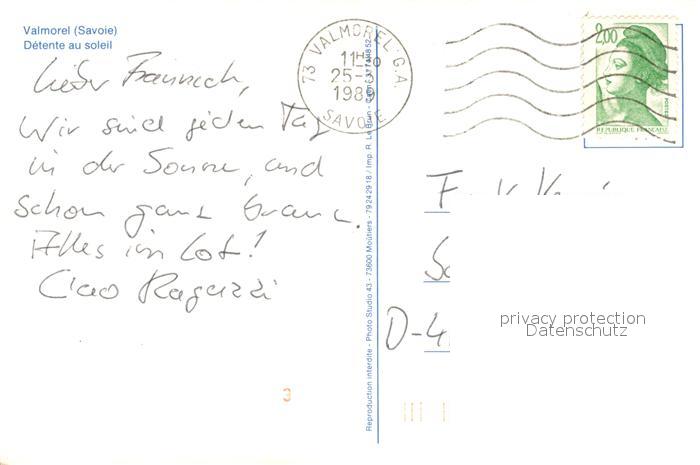 Valmorel (Savoie)
Détente au soleil
Lieber
Wir sind jeden Tag
in der Sonne, und
schon ganz braun.
Alles im Lot!
Ciao Ragazzi
73 VALMOREL G.A.
25-3
SAVOIE
2,00
POSTES
REPUBLIQUE FRANÇAISE
D-4
privacy protection
Datenschutz
3
Reproduction interdite - Photo Studio 43 - 73600 Moûtiers - 79 24 29 18 / Imp. R. Le Brun